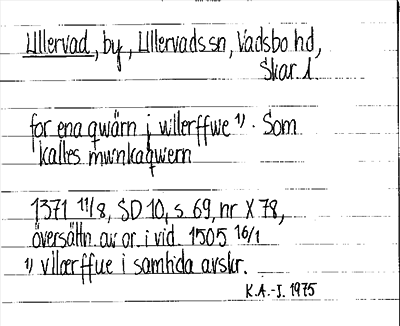 Ullervad, by, Ullervads sn, Vadsbo hd,
Skar. l
for ena qwärn j willerffwe 1). Som
kalles mwnkaqwern
1371 11/8, SD 10, s. 69, nr X 78,
översättn. av or. i vid. 1505 16/1
1) villærffue i samtida avskr.
K.A.-J. 1975